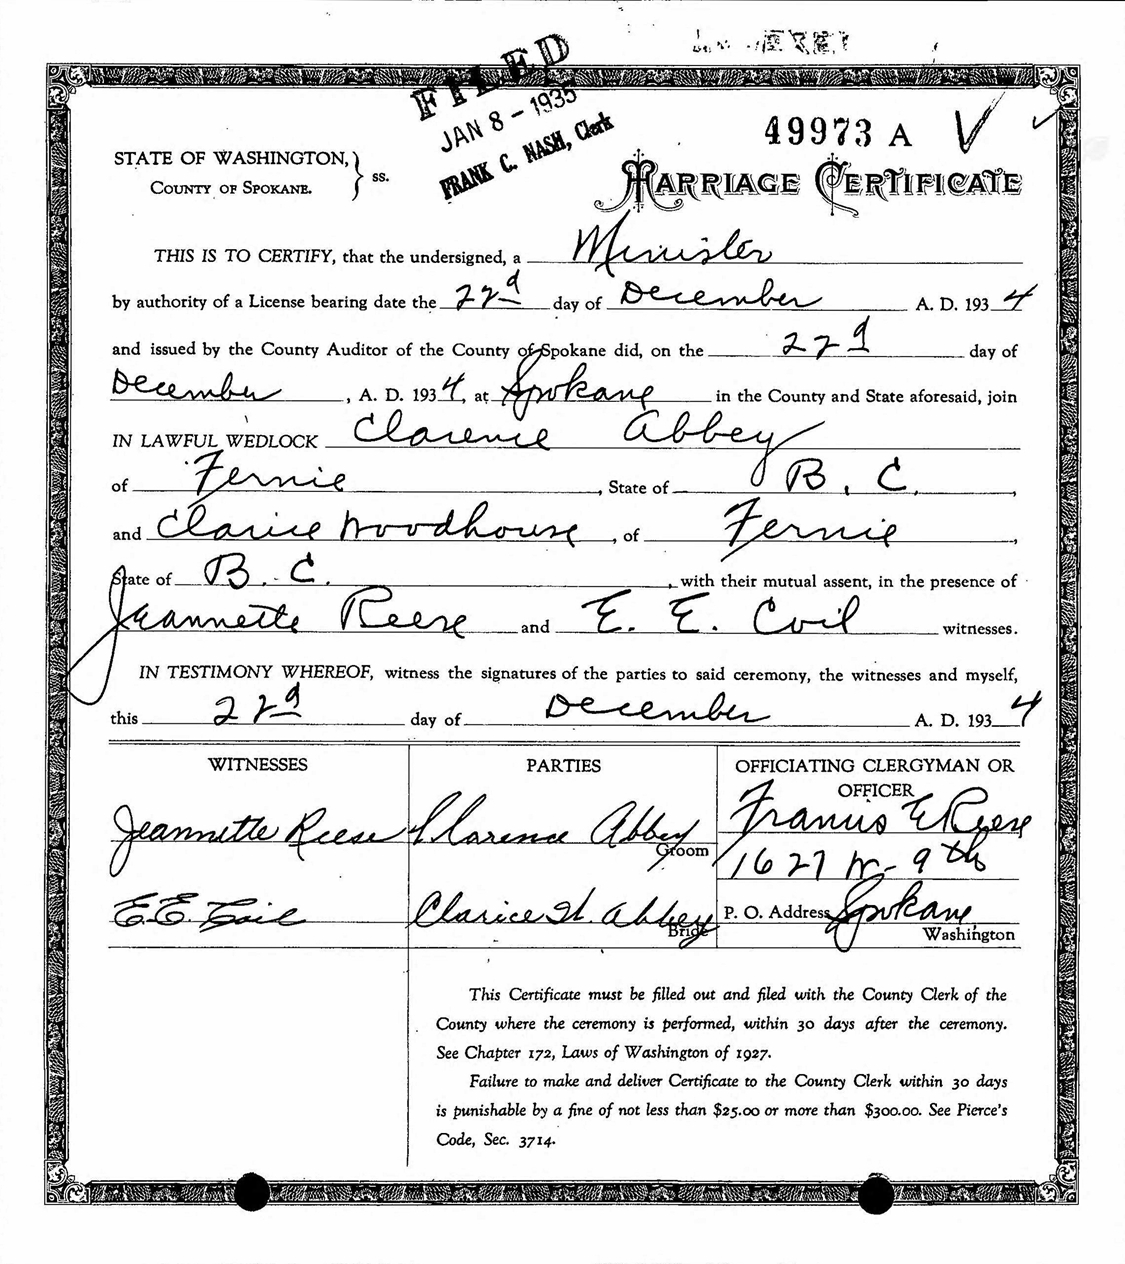 FILED
JAN 8 - 1935
FRANK C. NASH, Clerk
49973 A
STATE OF WASHINGTON,
COUNTY OF SPOKANE. } ss.
MARRIAGE CERTIFICATE
THIS IS TO CERTIFY, that the undersigned, a Minister
by authority of a License bearing date the 22d day of December A. D. 1934
and issued by the County Auditor of the County of Spokane did, on the 22d day of
December, A. D. 1934, at Spokane in the County and State aforesaid, join
IN LAWFUL WEDLOCK Clarence Abbey
of Fernie, State of B. C.,
and Clarice Woodhouse, of Fernie,
State of B. C., with their mutual assent, in the presence of
Jeannette Reese and E. E. Coil witnesses.
IN TESTIMONY WHEREOF, witness the signatures of the parties to said ceremony, the witnesses and myself,
this 22d day of December A. D. 1934
WITNESSES PARTIES OFFICIATING CLERGYMAN OR
OFFICER
Jeannette Reese Clarence Abbey Francis E Reese
Groom
1627 W-9th
E.E. Coil Clarice W. Abbey P. O. Address Spokane
Bride Washington
This Certificate must be filled out and filed with the County Clerk of the
County where the ceremony is performed, within 30 days after the ceremony.
See Chapter 172, Laws of Washington of 1927.
Failure to make and deliver Certificate to the County Clerk within 30 days
is punishable by a fine of not less than $25.00 or more than $300.00. See Pierce's
Code, Sec. 3714.